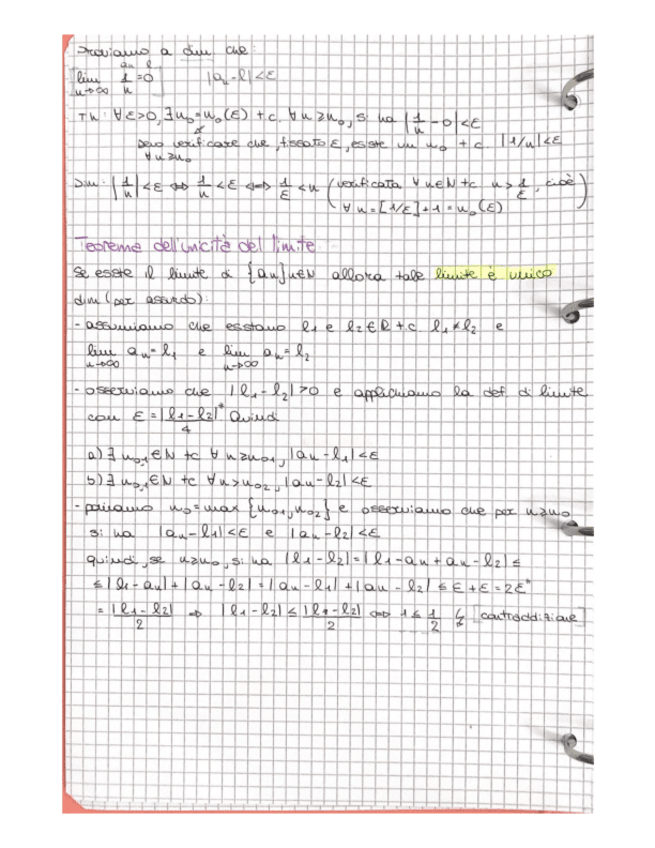 Proviamo a dim che:
an l
lim 1/n = 0 |an-l|<ε
n→∞
TH: ∀ε>0, ∃n₀=n₀(ε) t.c. ∀n≥n₀, si ha |1/n - 0|<ε
devo verificare che, fissato ε, esiste un n₀ t.c. |1/n|<ε
∀n≥n₀
Dim: |1/n|<ε ⇔ 1/n<ε ⇔ 1/ε<n (verificata ∀n∈N t.c. n>1/ε, cioè
∀n=[1/ε]+1=n₀(ε))
Teorema dell'unicità del limite
Se esiste il limite di {an}n∈N allora tale limite è unico
dim (per assurdo):
- assumiamo che esistano l1 e l2∈R t.c. l1≠l2 e
lim an=l1 e lim an=l2
n→∞ n→∞
- osserviamo che |l1-l2|>0 e applichiamo la def. di limite
con ε=|l1-l2|/4* Quindi
a) ∃n₀,1∈N tc ∀n≥n₀1, |an-l1|<ε
b) ∃n₀,1∈N tc ∀n>n₀2, |an-l2|<ε
- poniamo n₀=max{n₀1,n₀2} e osserviamo che per n≥n₀
si ha |an-l1|<ε e |an-l2|<ε
quindi, se n≥n₀, si ha |l1-l2|=|l1-an+an-l2|≤
≤|l1-an|+|an-l2|=|an-l1|+|an-l2|≤ε+ε=2ε*
=|l1-l2|/2 ⇒ |l1-l2|≤|l1-l2|/2 ⇔ 1≤1/2 ↯ [contraddizione]